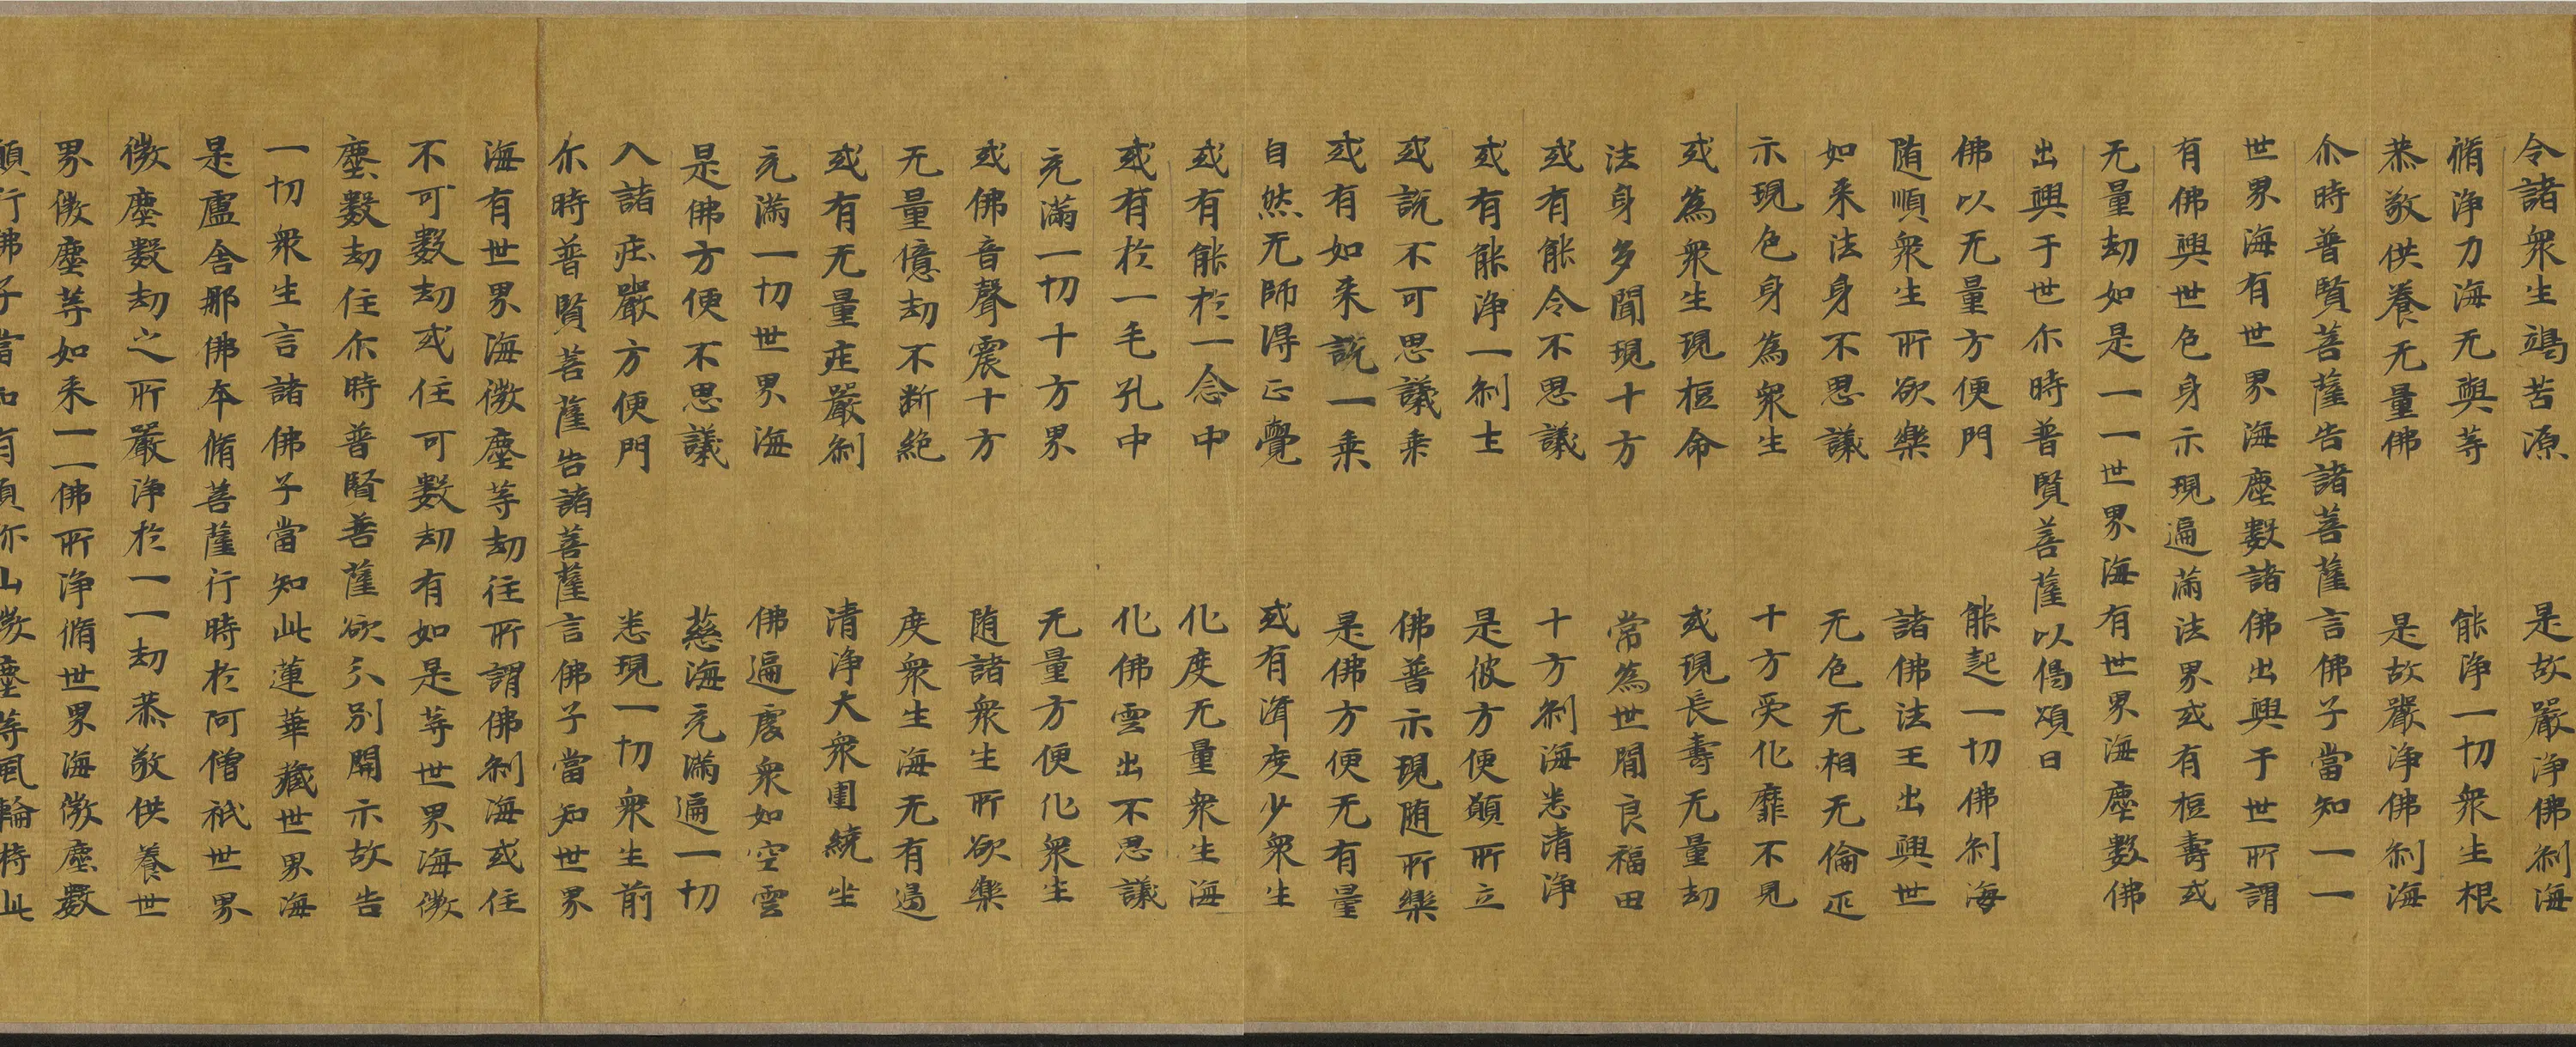 令諸衆生竭苦源　是故嚴淨佛刹海
脩淨力海无與等　能淨一切衆生根
恭敬供養无量佛　是故嚴淨佛刹海
尒時普賢菩薩告諸菩薩言佛子當知一一
世界海有世界海塵數諸佛出興于世所謂
有佛興世色身示現遍滿法界或有桓壽或
无量劫如是一一世界海有世界海塵數佛
出興于世尒時普賢菩薩以偈頌曰
佛以无量方便門　能起一切佛刹海
随順衆生所欲樂　諸佛法王出興世
如来法身不思議　无色无相无倫匹
示現色身為衆生　十方受化靡不見
或為衆生現桓命　或現長壽无量劫
法身多聞現十方　常為世間良福田
或有能令不思議　十方刹海悉清淨
或有能淨一刹土　是彼方便願所立
或說不可思議乘　佛普示現随所樂
或有如来說一乘　是佛方便无有量
自然无師得正覺　或有濟度少衆生
或有能於一念中　化度无量衆生海
或有於一毛孔中　化佛雲出不思議
充滿一切十方界　无量方便化衆生
或佛音聲震十方　随諸衆生所欲樂
无量億劫不断絶　度衆生海无有邊
或有无量庄嚴刹　清淨大衆圍繞坐
充滿一切世界海　佛遍處衆如空雲
是佛方便不思議　慈海充滿遍一切
入諸庄嚴方便門　悉現一切衆生前
尒時普賢菩薩告諸菩薩言佛子當知世界
海有世界海微塵等劫住所謂佛刹海或住
不可數劫或住可數劫有如是等世界海微
塵數劫住尒時普賢菩薩欲分別開示故告
一切衆生言諸佛子當知此蓮華藏世界海
是盧舍那佛本脩菩薩行時於阿僧祇世界
微塵數劫之所嚴淨於一一劫恭敬供養世
界微塵等如来一一佛所淨脩世界海微塵數
願行佛子當知有須弥山微塵等風輪持此